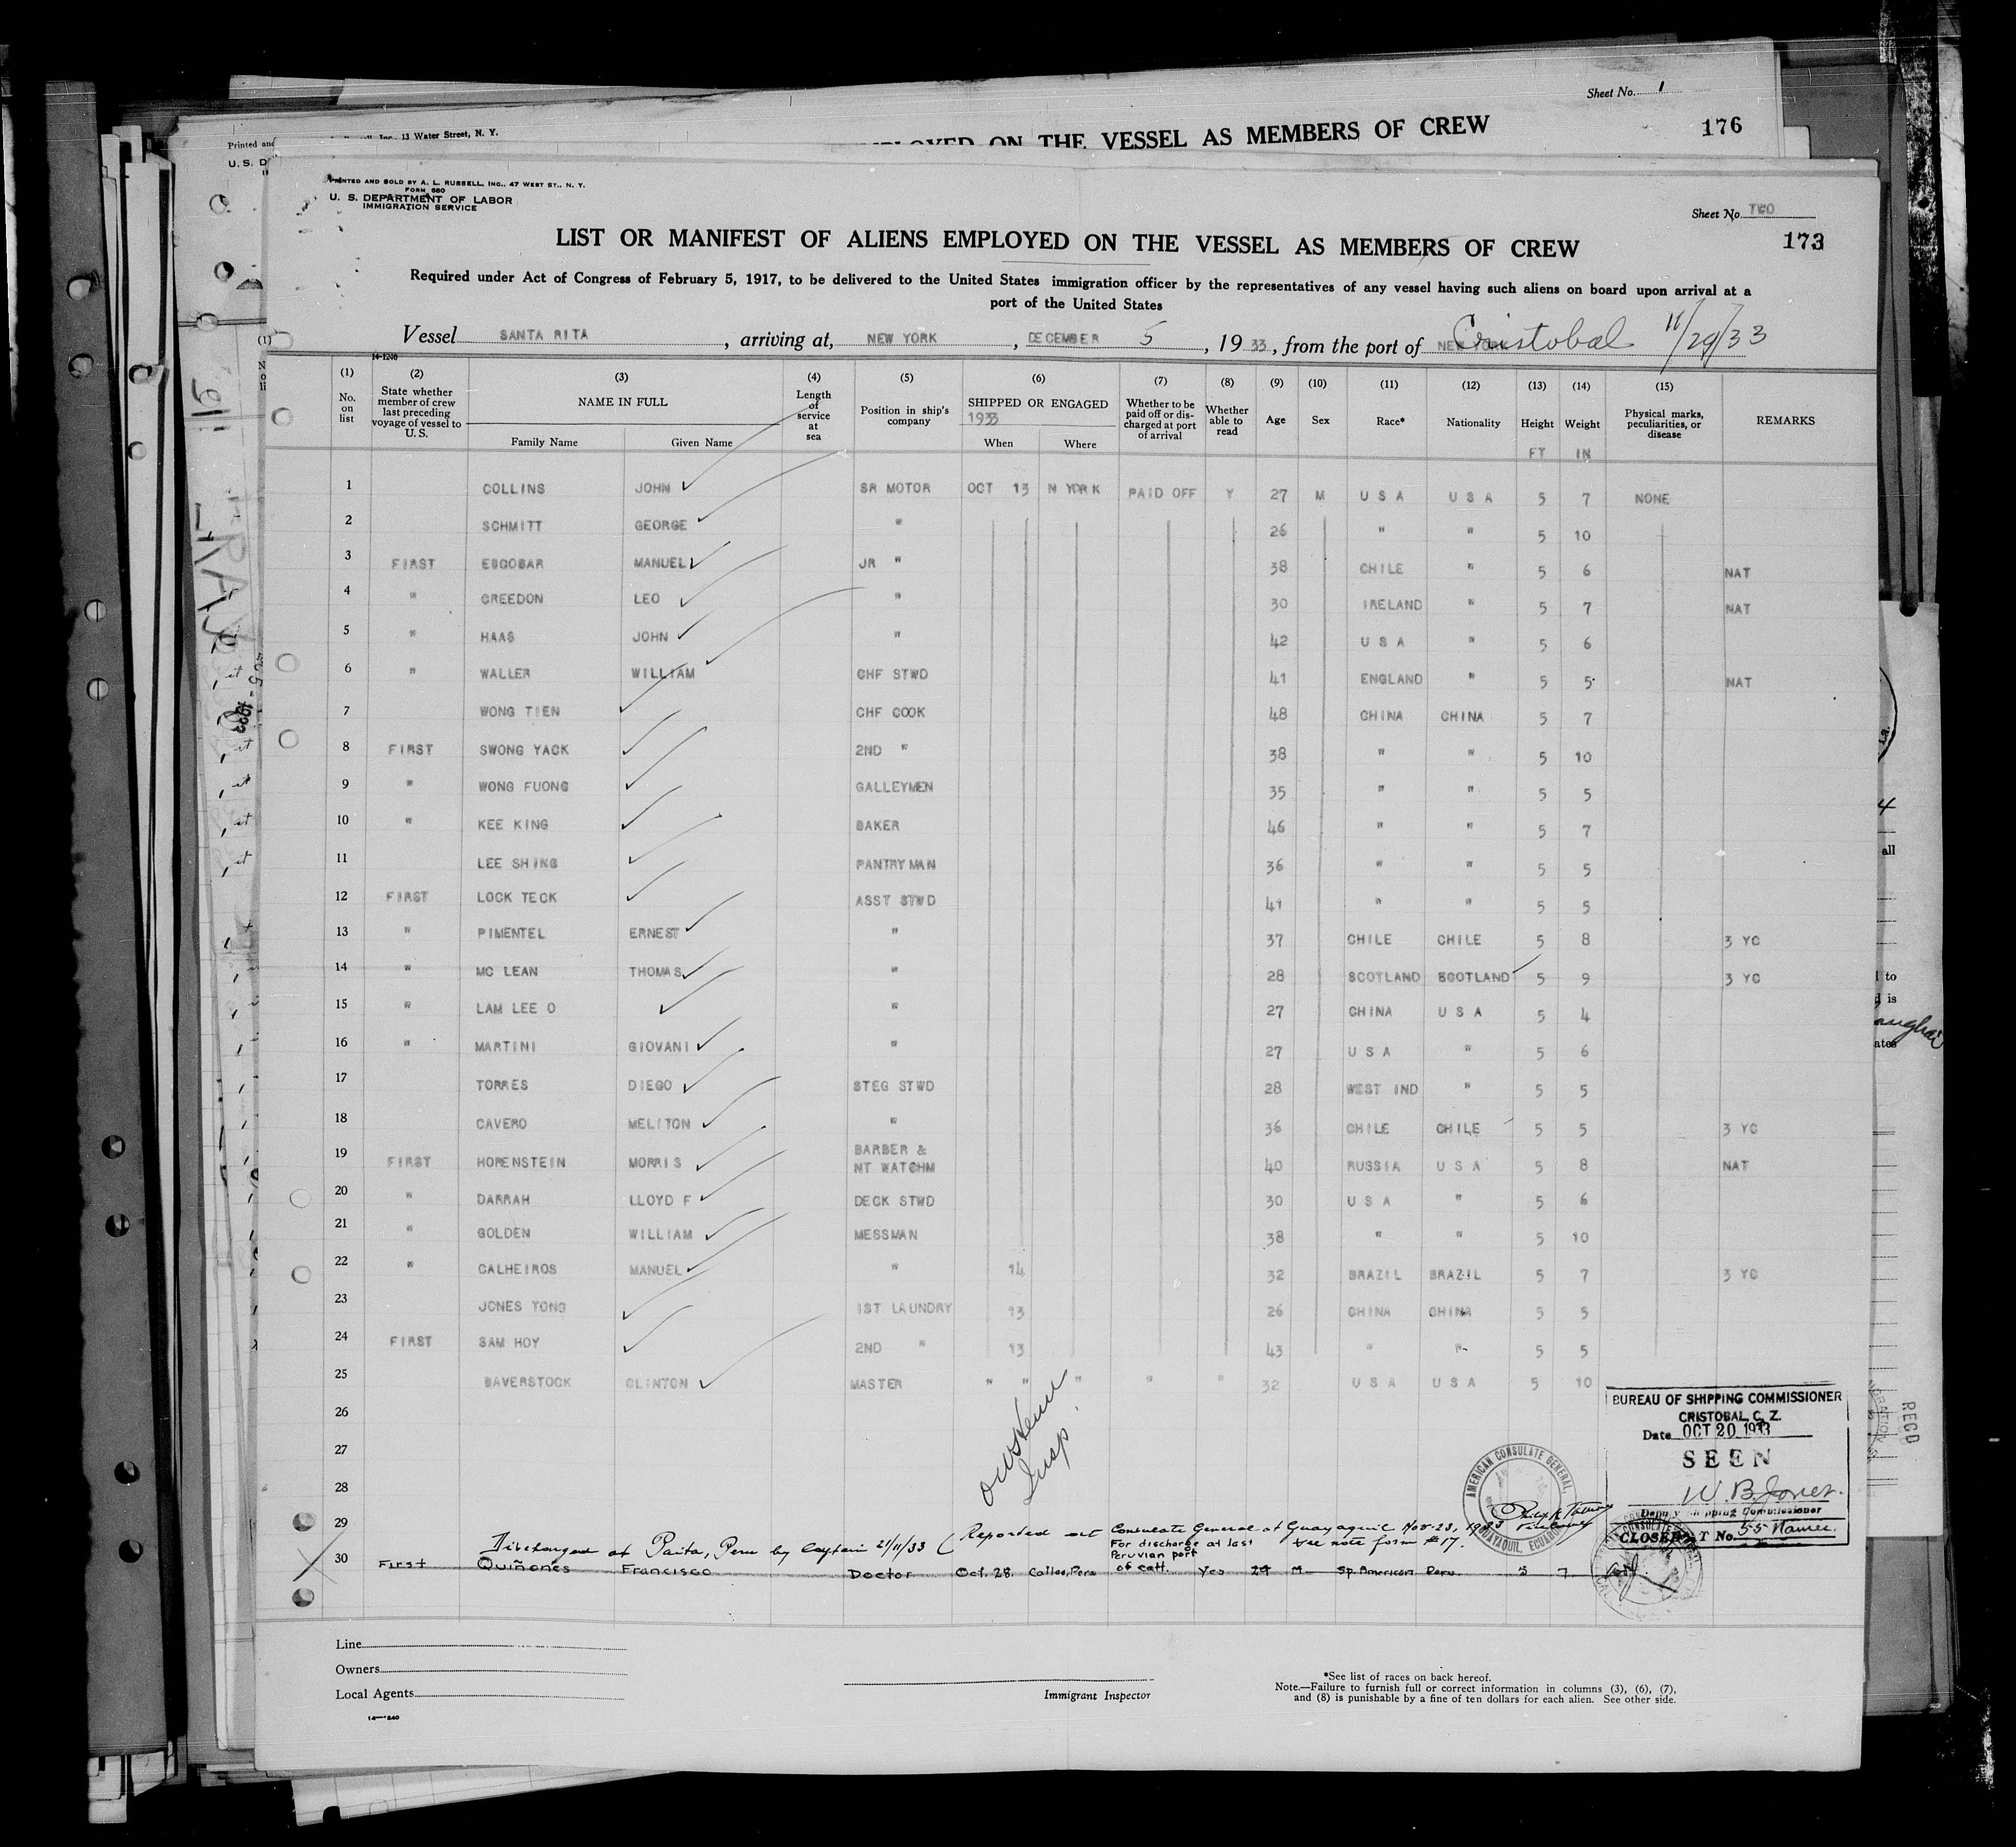 Sheet No. 1
13 Water Street, N. Y.
ON THE VESSEL AS MEMBERS OF CREW
176
Printed and
U. S. D
PRINTED AND SOLD BY A. L. RUSSELL, INC., 47 WEST ST., N. Y.
FORM 680
U. S. DEPARTMENT OF LABOR
IMMIGRATION SERVICE
Sheet No. TWO
173
LIST OR MANIFEST OF ALIENS EMPLOYED ON THE VESSEL AS MEMBERS OF CREW
Required under Act of Congress of February 5, 1917, to be delivered to the United States immigration officer by the representatives of any vessel having such aliens on board upon arrival at a
port of the United States
Vessel SANTA RITA, arriving at, NEW YORK, DECEMBER 5, 1933, from the port of Cristobal 11/29/33
14-1240
(1) No. on list (2) State whether member of crew last preceding voyage of vessel to U. S. (3) NAME IN FULL Family Name Given Name (4) Length of service at sea (5) Position in ship's company (6) SHIPPED OR ENGAGED 1933 When Where (7) Whether to be paid off or discharged at port of arrival (8) Whether able to read (9) Age (10) Sex (11) Race* (12) Nationality (13) Height FT (14) Weight IN (15) Physical marks, peculiarities, or disease REMARKS
1 COLLINS JOHN SR MOTOR OCT 13 N YORK PAID OFF Y 27 M U S A U S A 5 7 NONE
2 SCHMITT GEORGE " 26 " " 5 10
3 FIRST ESCOBAR MANUEL JR " 38 CHILE " 5 6 NAT
4 " CREEDON LEO " 30 IRELAND " 5 7 NAT
5 " HAAS JOHN " 42 U S A " 5 6
6 " WALLER WILLIAM CHF STWD 41 ENGLAND " 5 5 NAT
7 WONG TIEN CHF COOK 48 CHINA CHINA 5 7
8 FIRST SWONG YACK 2ND " 38 " " 5 10
9 " WONG FUONG GALLEYMEN 35 " " 5 5
10 " KEE KING BAKER 46 " " 5 7
11 LEE SHING PANTRYMAN 36 " " 5 5
12 FIRST LOCK TECK ASST STWD 41 " " 5 5
13 " PIMENTEL ERNEST " 37 CHILE CHILE 5 8 3 YC
14 " MC LEAN THOMAS " 28 SCOTLAND SCOTLAND 5 9 3 YC
15 " LAM LEE O " 27 CHINA U S A 5 4
16 " MARTINI GIOVANI " 27 U S A " 5 6
17 TORRES DIEGO STEG STWD 28 WEST IND " 5 5
18 CAVERO MELITON " 36 CHILE CHILE 5 5 3 YC
19 FIRST HORENSTEIN MORRIS BARBER & NT WATCHM 40 RUSSIA U S A 5 8 NAT
20 " DARRAH LLOYD F DECK STWD 30 U S A " 5 6
21 " GOLDEN WILLIAM MESSMAN 38 " " 5 10
22 " CALHEIROS MANUEL " 14 32 BRAZIL BRAZIL 5 7 3 YC
23 JONES TONG 1ST LAUNDRY 13 26 CHINA CHINA 5 5
24 FIRST SAM HOY 2ND " 13 43 " " 5 5
25 BAVERSTOCK CLINTON MASTER " " " " " 32 U S A U S A 5 10
26
27
28
29
Insp.
Discharged at Paita, Peru by Captain 21/11/33 (Reported at Consulate General at Guayaquil Nov-23, 1933
See note form #17.
30 First Quiñones Francisco Doctor Oct. 28 Callao, Peru For discharge at last Peruvian port of call. Yes 29 M Sp. American Peru 5 7
AMERICAN CONSULATE GENERAL, GUAYAQUIL, ECUADOR
BUREAU OF SHIPPING COMMISSIONER
CRISTOBAL, C. Z.
Date OCT 20 1933
SEEN
W. B. Jones.
Deputy Shipping Commissioner
CLOSED AT No. 55 Names
Line
Owners
Local Agents
14—1240
Immigrant Inspector
*See list of races on back hereof.
Note.—Failure to furnish full or correct information in columns (3), (6), (7),
and (8) is punishable by a fine of ten dollars for each alien. See other side.
RECD